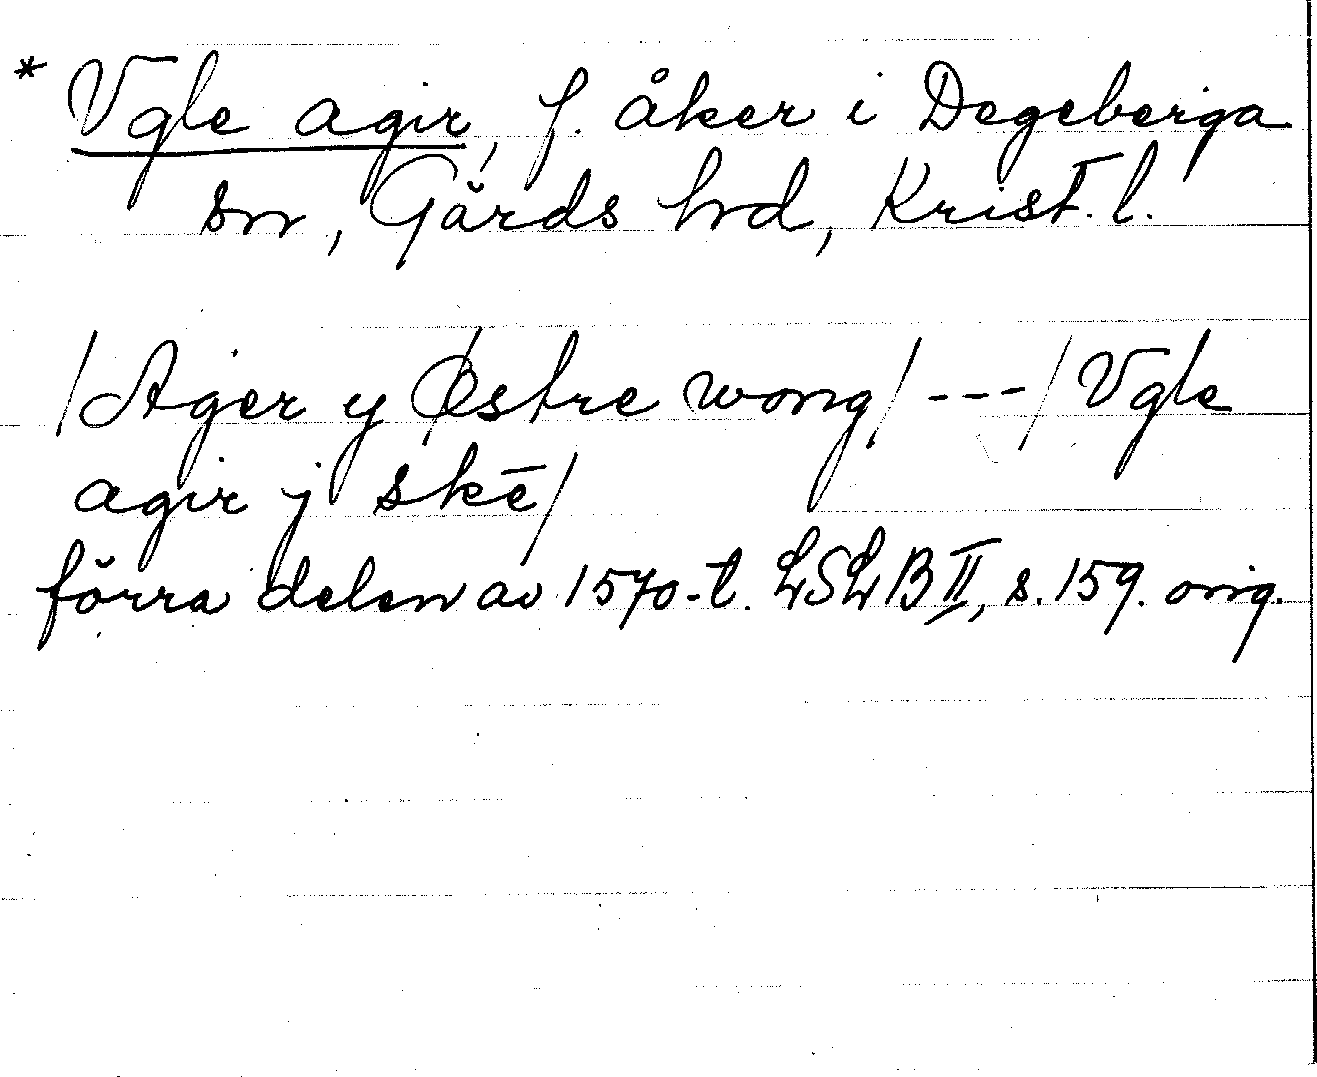 * Vgle agir, f. åker i Degeberga
sn, Gärds hrd, Krist. l.
/Ager y Østre wong/ --- / Vgle
agir j skē/
förra delen av 1570-t. LSLB II, s. 159. orig.